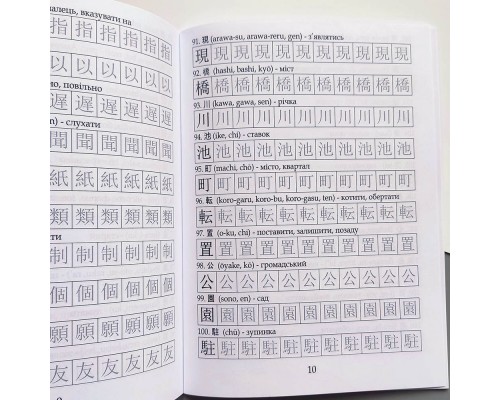 алець, вказувати на
指 指 指 指
以 以 以 以
но, повільно
遅 遅 遅 遅
n) - слухати
聞 聞 聞 聞 聞
紙 紙 紙 紙 紙
類 類 類 類 類
ти
制 制 制 制 制
個 個 個 個 個
願 願 願 願 願
友 友 友 友 友
9
91. 現 (arawa-su, arawa-reru, gen) - з'являтись
現 現 現 現 現 現 現 現 現 現
92. 橋 (hashi, bashi, kyō) - міст
橋 橋 橋 橋 橋 橋 橋 橋 橋 橋
93. 川 (kawa, gawa, sen) - річка
川 川 川 川 川 川 川 川 川 川
94. 池 (ike, chi) - ставок
池 池 池 池 池 池 池 池 池 池
95. 町 (machi, chō) - місто, квартал
町 町 町 町 町 町 町 町 町 町
96. 転 (koro-garu, koro-bu, koro-gasu, ten) - котити, обертати
転 転 転 転 転 転 転 転 転 転
97. 置 (o-ku, chi) - поставити, залишити, позаду
置 置 置 置 置 置 置 置 置 置
98. 公 (ōyake, kō) - громадський
公 公 公 公 公 公 公 公 公 公
99. 園 (sono, en) - сад
園 園 園 園 園 園 園 園 園 園
100. 駐 (chū) - зупинка
駐 駐 駐 駐 駐 駐 駐 駐 駐 駐
10